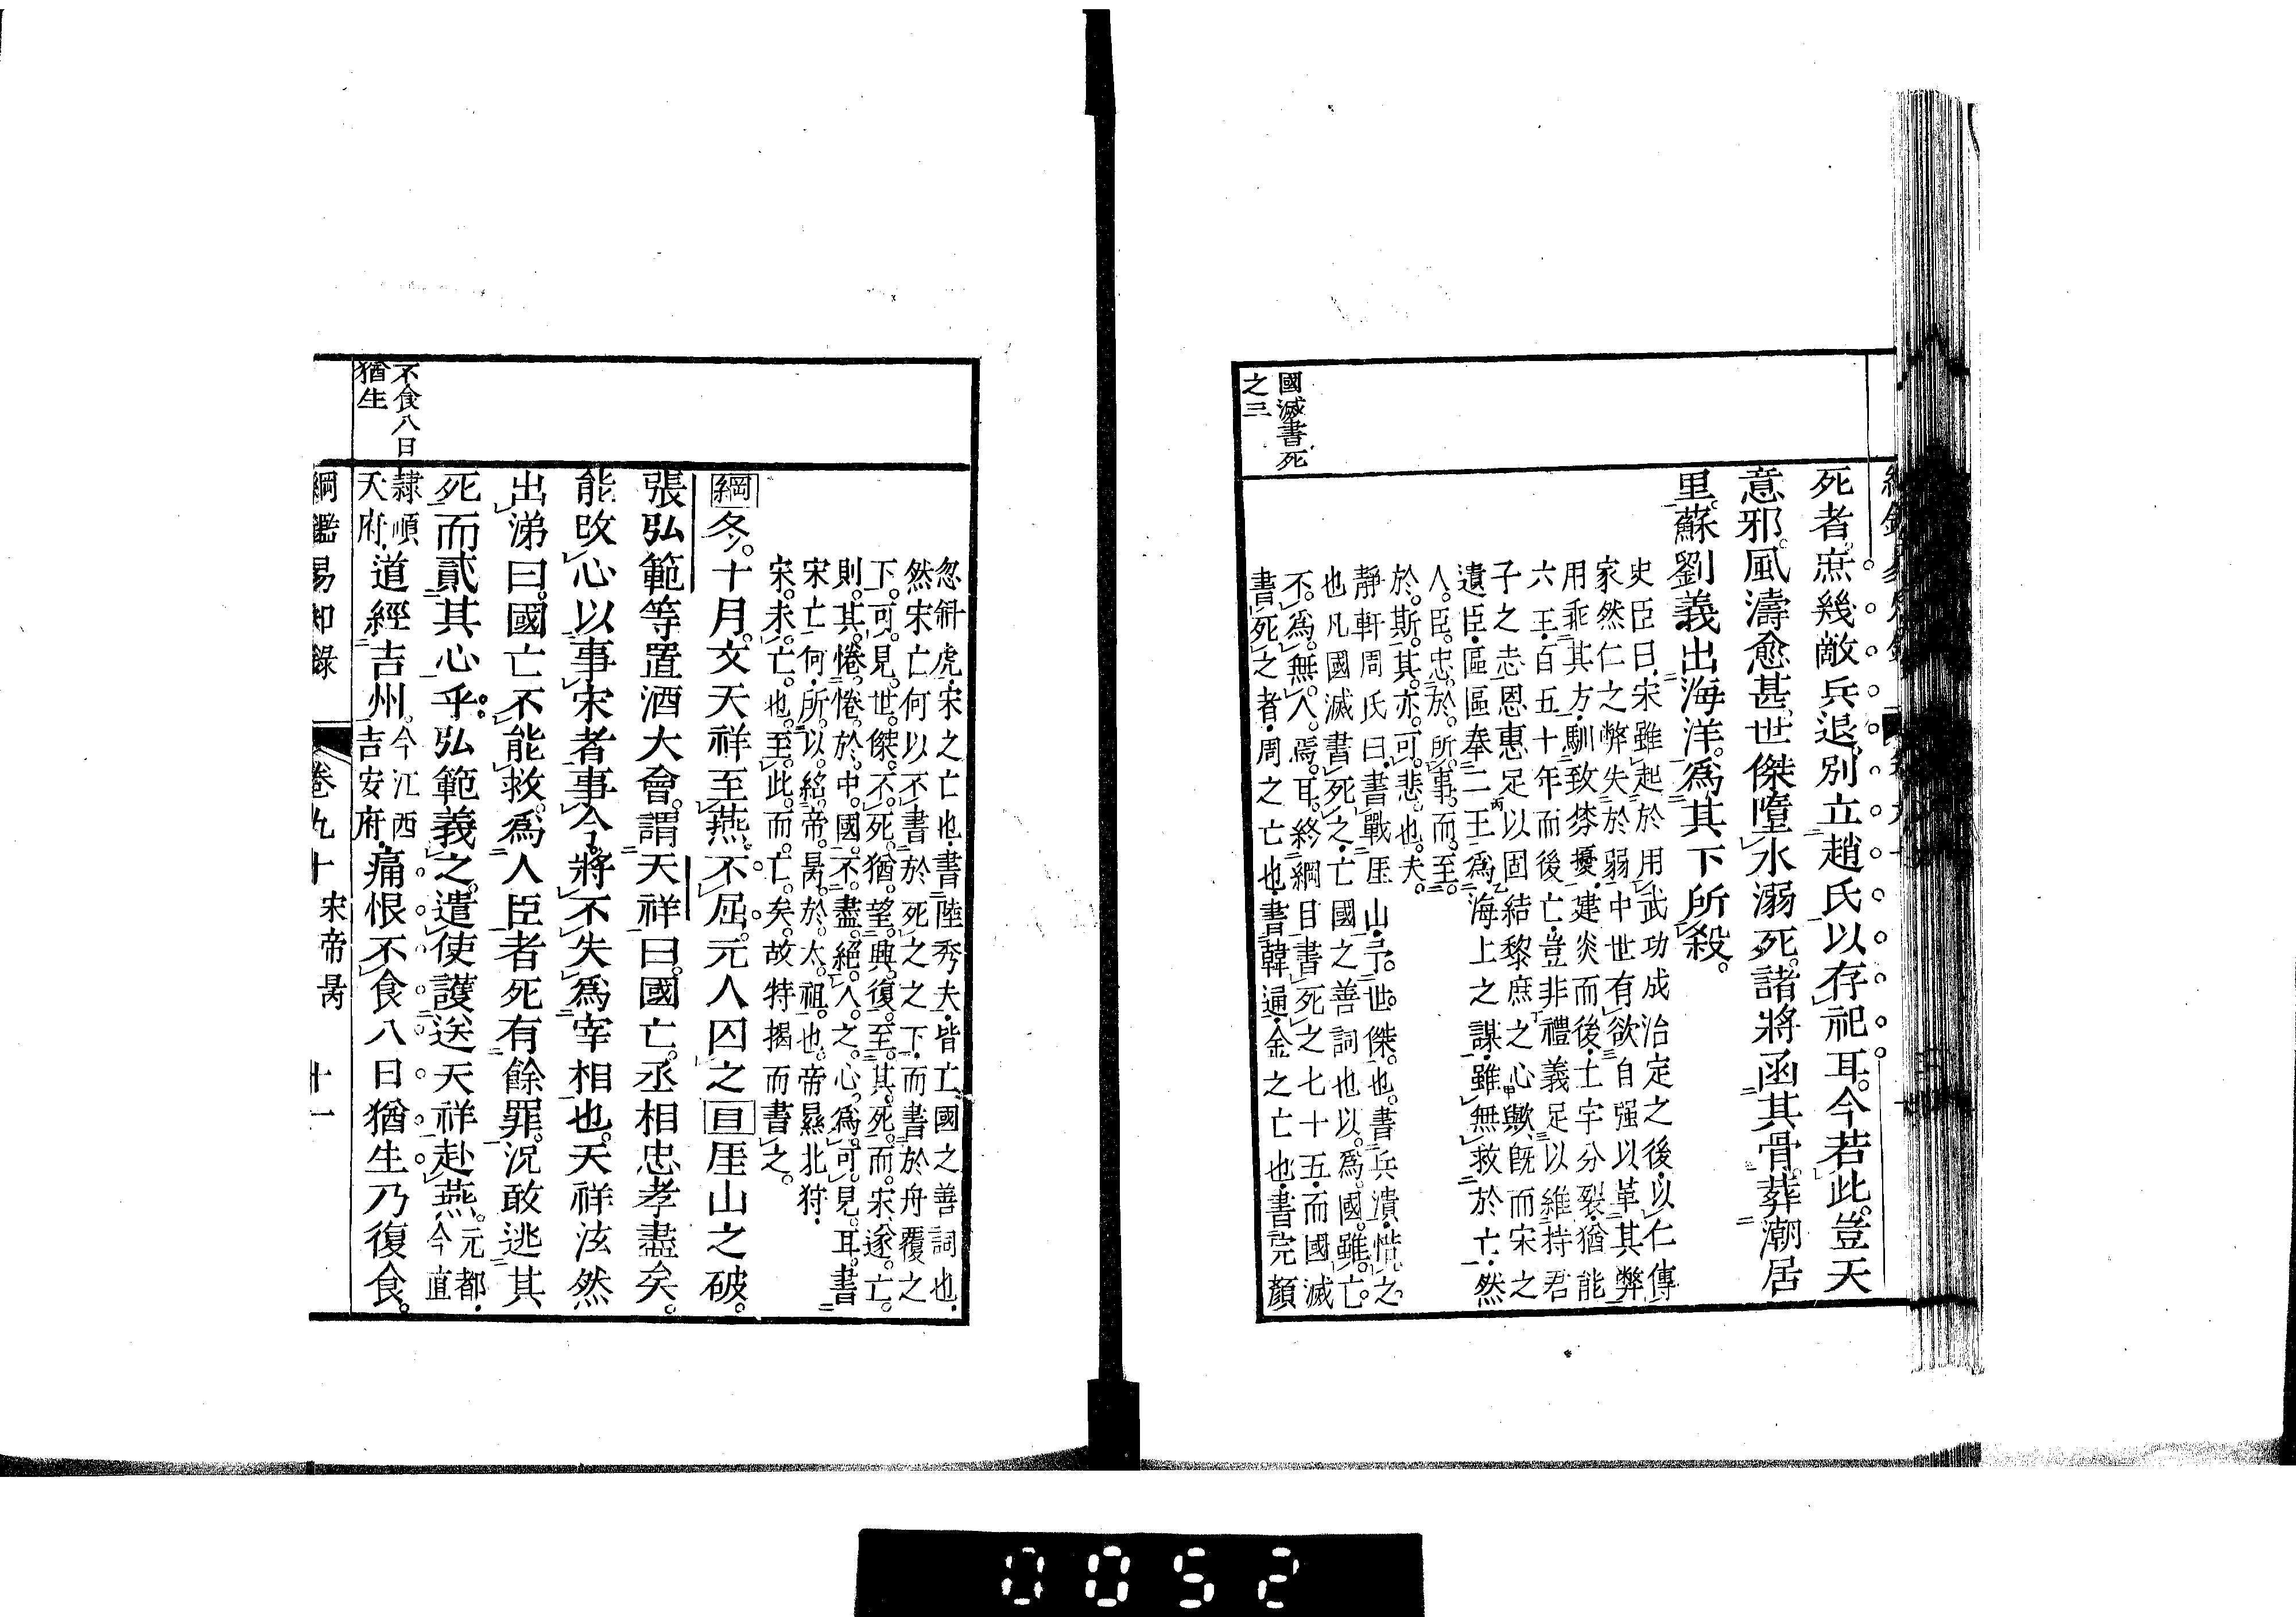 死者庶幾敵兵退別立趙氏以存祀耳今若此豈天
意邪風濤愈甚世傑墮水溺死諸將函其骨葬潮居
里蘇劉義出海洋爲其下所殺
史臣曰宋雖起於用武功成治定之後以仁傳
家然仁之弊失於弱中世有欲自强以革其弊
用乖其方馴致棼擾建炎而後土宇分裂猶能
六王百五十年而後亡豈非禮義足以維持君
子之志恩惠足以固結黎庶之心歟旣而宋之
遺臣區區奉二王爲海上之謀雖無救於亡然
人臣忠於所事而至
於斯其亦可悲也夫
靜軒周氏曰書戰厓山予世傑也書兵潰惜之
也凡國滅書死之亡國之善詞也以爲國雖亡
不爲無人焉耳終綱目書死之七十五而國滅
書死之者周之亡也書韓通金之亡也書完顏
國滅書死
之三
忽斜虎宋之亡也書陸秀夫皆亡國之善詞也
然宋亡何以不書於死之之下而書於舟覆之
下可見世傑不死猶望興復至其死而宋遂亡
則其惓惓於中國不盡絕人之心爲可見耳書
宋亡何所以絡帝昺於太祖也帝㬎北狩
宋未亡也至此而亡矣故特揭而書之
綱冬十月文天祥至燕不屈元人囚之目厓山之破
張弘範等置酒大會謂天祥曰國亡丞相忠孝盡矣
能改心以事宋者事今將不失爲宰相也天祥泫然
出涕曰國亡不能救爲人臣者死有餘罪況敢逃其
死而貳其心乎弘範義之遣使護送天祥赴燕元都今直
隸順天府道經吉州今江西吉安府痛恨不食八日猶生乃復食
不食八日
猶生
綱鑑易知錄 卷九十 宋帝昺 十一